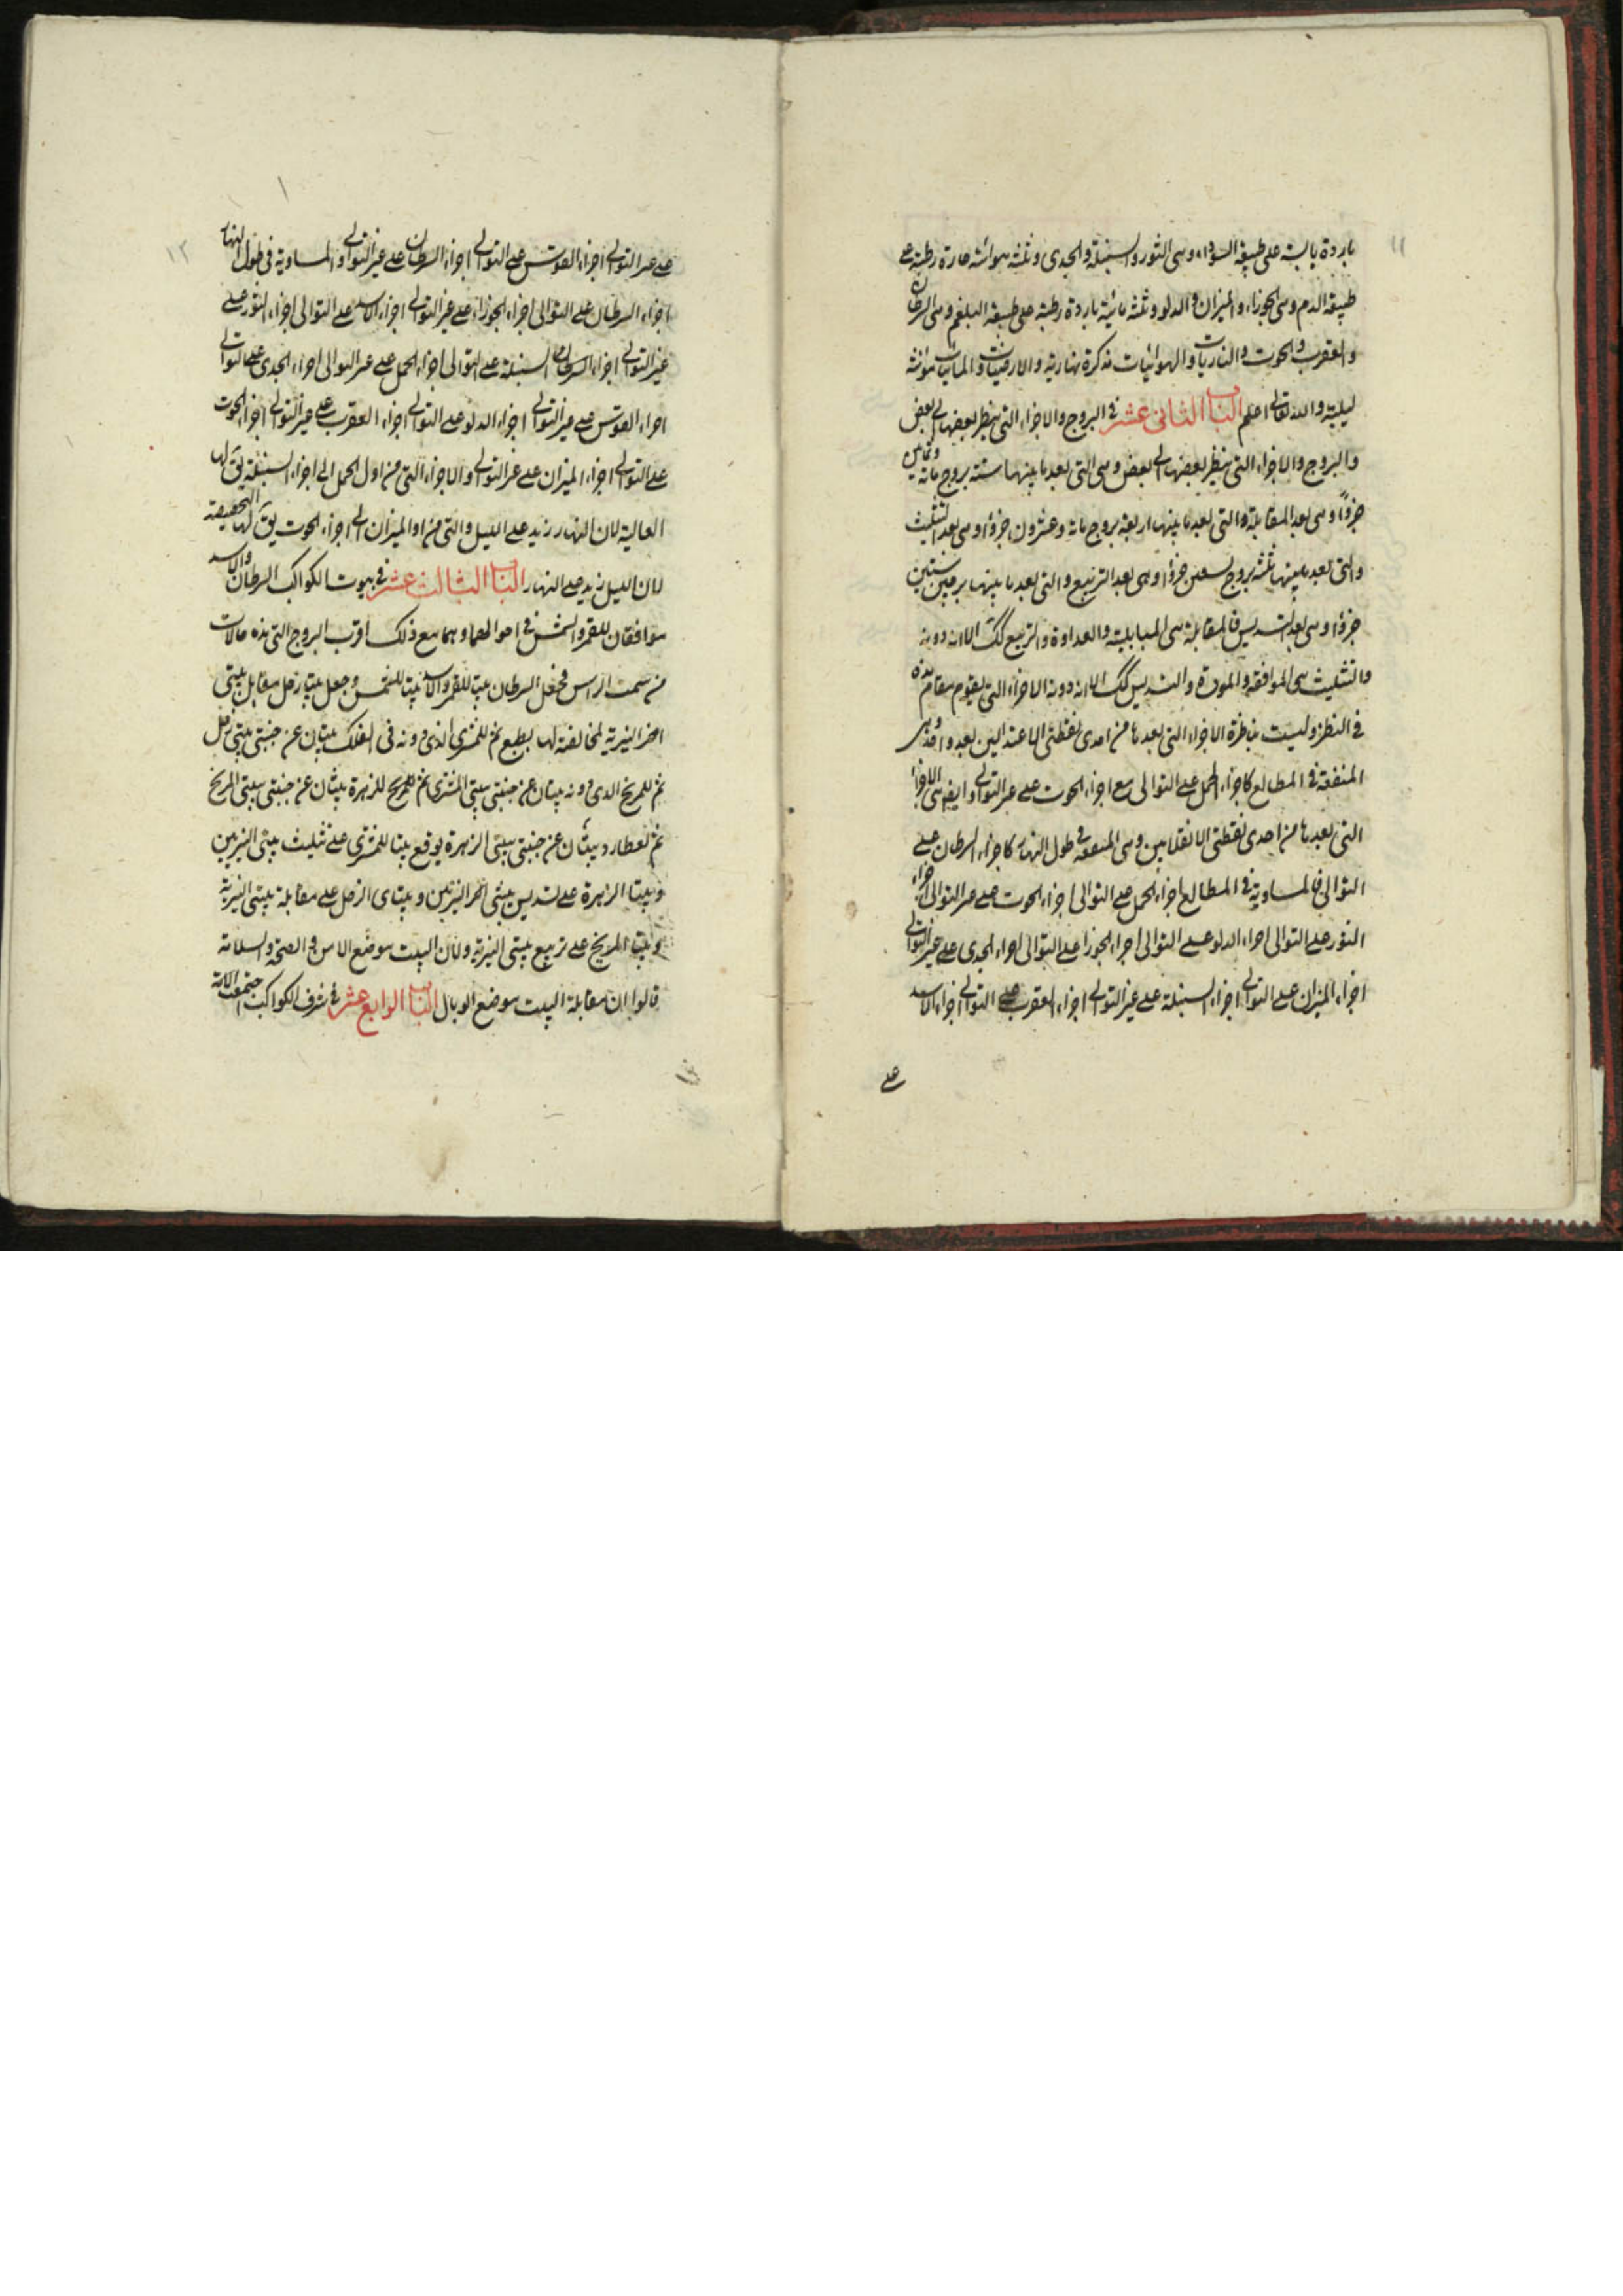 ١١
باردة يابسة على طبيعة السوداء وهى الثور والسنبلة والجدى وثلثه هوائيه حارة رطبة على
طبيعة الدم وهى الجوزاء والميزان والدلو وثلثه مائية باردة رطبة على طبيعة البلغم وهى السرطان
والعقرب والحوت والناريات والهوائيات مذكرة نهارية والارضيات والمائيات مؤنثه
ليلية والله تعالى اعلم الباب الثانى عشر فى البروج والاجزاء التى ينظر بعضها الى بعض
والبروج والاجزاء التى ينظر بعضها الى بعض وهى التى بعد ما بينها ستة بروج مائة وثمانين
جزؤا وهى بعد المقابلة والتى بعد ما بينها اربعة بروج مائة وعشرون جزؤا وهى بعد التثليث
والتى بعد ما بينها ثلثه بروج تسعين جزؤا وهى بعد التربيع والتى بعد ما بينها برجين ستين
جزؤا وهى بعد التسديس فالمقابلة هى المباينة والعداوة والتربيع كك الا انه دونه
والتثليث هى الموافقه والمودة والتسديس كك الا انه دونه الاجزاء التى يقوم مقام هذه
فى النظر وليست بناظرة الاجزاء التى بعدها من احدى نقطتى الاعتدالين بعد واحد وهى
المتفقة فى المطالع كاجزاء الحمل على التوالى مع اجزاء الحوت على غير التوالى وايضا هى الاجزاء
التى بعدها من احدى نقطتى الانقلابين وهى المتفقة فى طول النهار كاجزاء السرطان على
التوالى فالمساوية فى المطالع اجزاء الحمل على التوالى اجزاء الحوت على غير التوالى اجزاء
الثور على التوالى اجزاء الدلو على التوالى اجزاء الجوزا على التوالى اجزاء الجدى على غير التوالى
اجزاء الميزان على التوالى اجزاء السنبلة على غير التوالى اجزاء العقرب على التوالى اجزاء الاسد
على
١٢
على غير التوالى اجزاء القوس على التوالى اجزاء السرطان على غير التوالى والمساوية فى طول النهار
اجزاء السرطان على التوالى اجزاء الجوزاء على غير التوالى اجزاء الاسد على التوالى اجزاء الثور على
غير التوالى اجزاء السنبلة على التوالى اجزاء الحمل على غير التوالى اجزاء الجدى على التوالى
اجزاء القوس على غير التوالى اجزاء الدلو على التوالى اجزاء العقرب على غير التوالى اجزاء الحوت
على التوالى اجزاء الميزان على غير التوالى والاجزاء التى من اول الحمل الى اجزاء السنبلة يق لها
العالية لان النهار يزيد على الليل والتى من اول الميزان الى اجزاء الحوت يق لها
لان الليل يزيد على النهار الباب الثالث عشر فى بيوت الكواكب السرطان والاسد
موافقان للقمر والشمس فى احوالهما وهما مع ذلك اقرب البروج التى هذه حالات
من سمت الراس فجعل السرطان بيتا للقمر والاسد بيتا للشمس وجعل بيتا زحل مقابل بيتى
النيرية لمخالفته لها بطبع ثم للمشترى الذى دونه فى الفلك بيتان عن جنبتى بيتى زحل
ثم للمريخ الذى دونه بيتان عن جنبتى بيتى المشترى ثم للزهرة بيتان عن جنبتى بيتى المريخ
ثم لعطارد بيتان عن جنبتى بيتى الزهرة يوقع بيتا للمشترى على تثليث بيتى النيرين
وبيتا الزهرة على تسديس بيتى النيرين وبيتاى الزحل على مقابلة بيتى النيرية
وبيتا المريخ على تربيع بيتى النيرية ولان البيت موضع الامن والصحة والسلامة
قالوا ان مقابلة البيت موضع الوبال الباب الرابع عشر فى شرف الكواكب اجتمعت